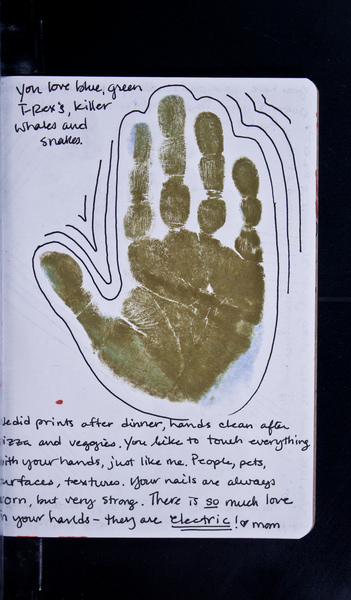 you love blue, green
T-Rex's, killer
whales and
snakes.
We did prints after dinner, hands clean after
pizza and veggies. You like to touch everything
with your hands, just like me. People, pets,
surfaces, textures. Your nails are always
worn, but very strong. There is so much love
in your hands – they are electric! ♥ mom